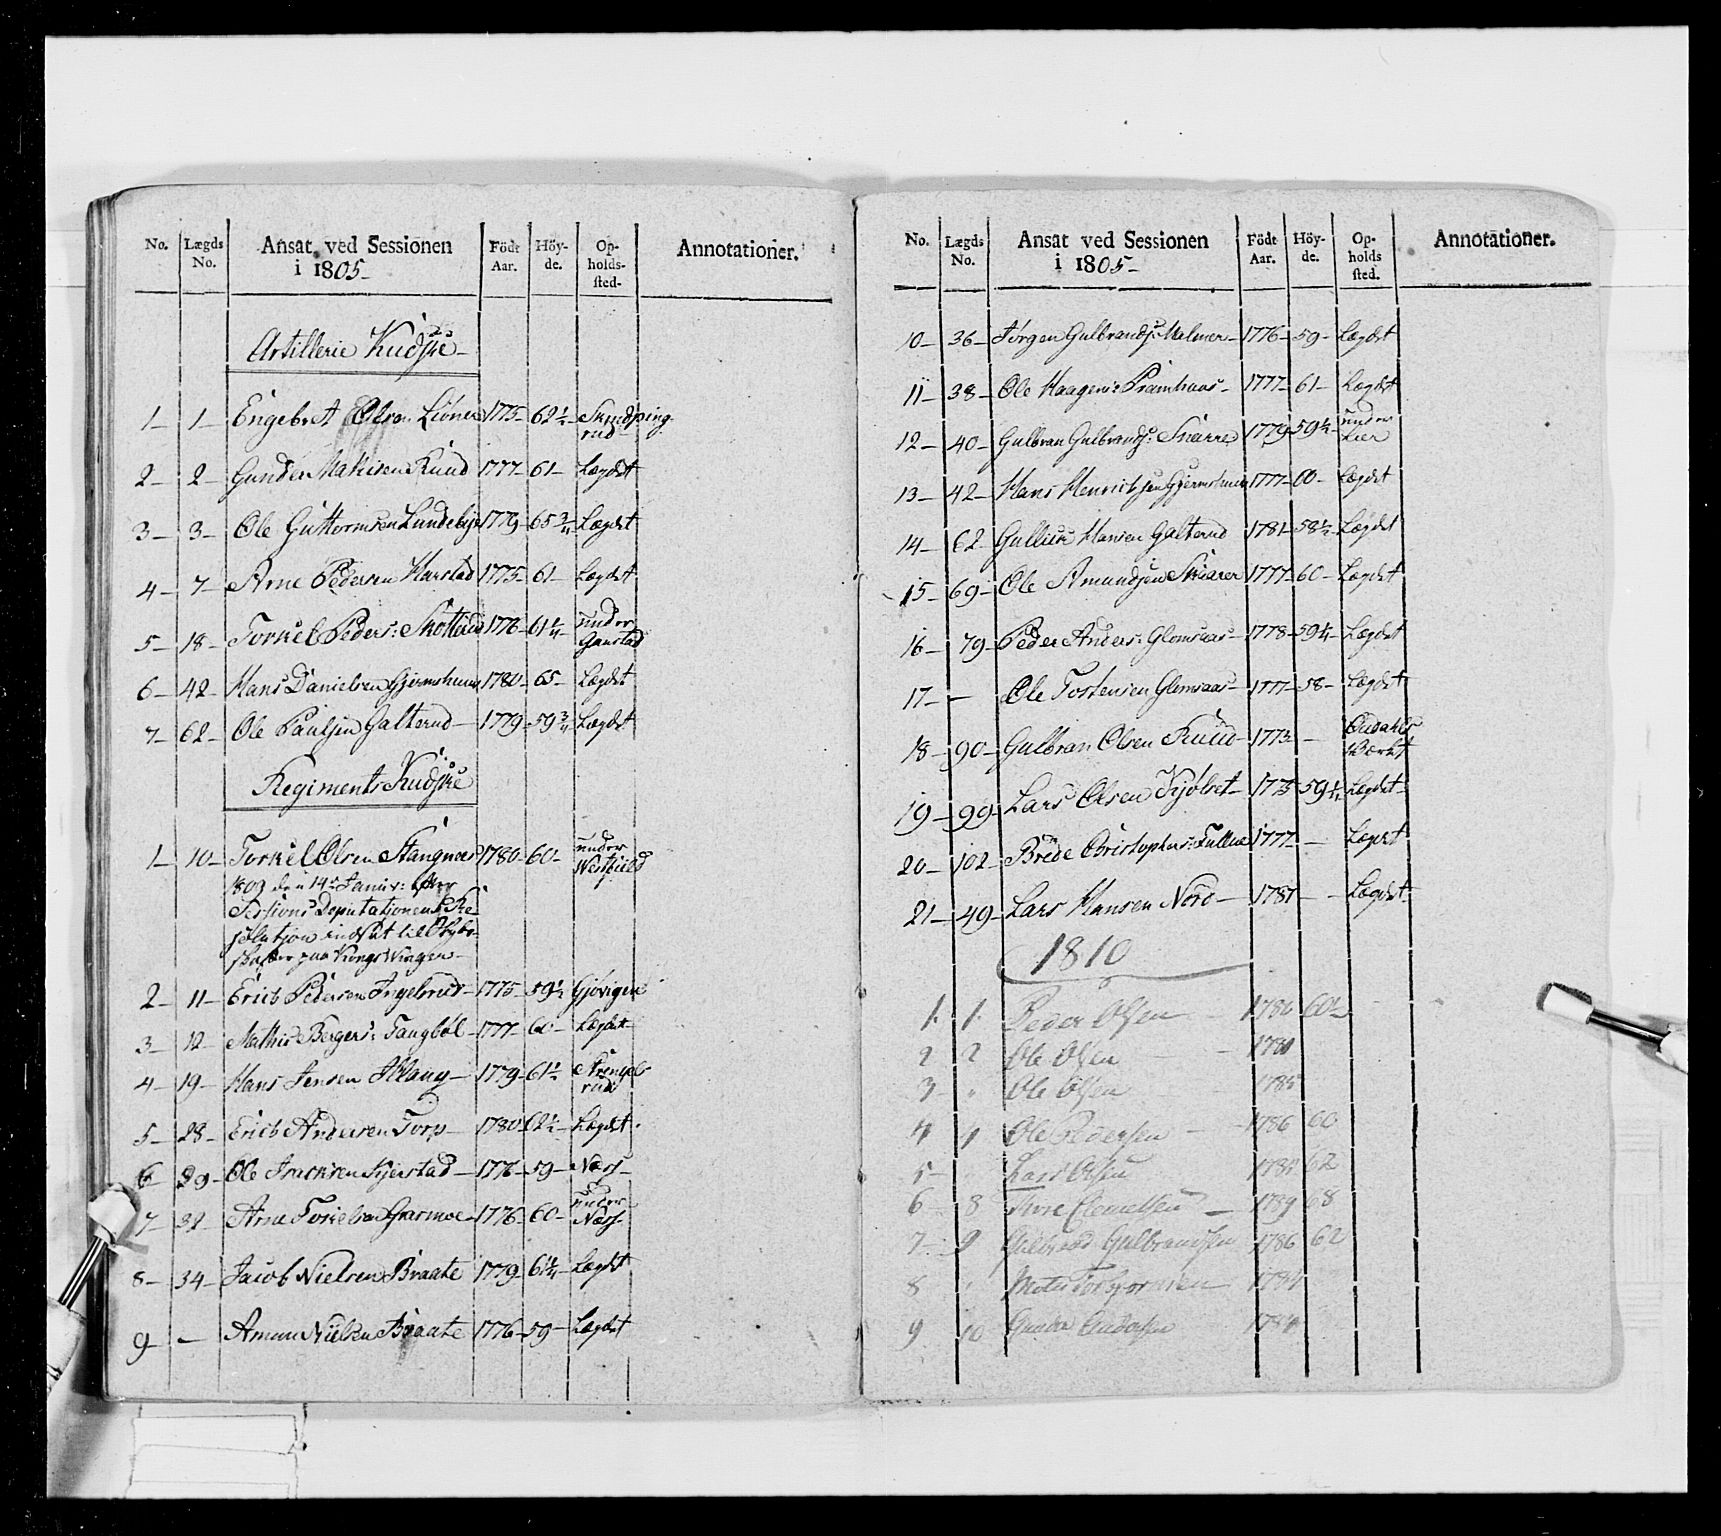 No. Lægds No. Ansat ved Sessionen i 1805- Födt Aar. Höyde. Opholdssted- Annotationer.
Artillerie Kudske-
1- 1- Engebret Olsen 1775- 62½-
2- 2- Gunder Mathisen Ruud 1777- 61- Lægdet
3- 3- Ole Guttormsen Lundebye 1779- 65¾ Lægdet
4- 7- Arne Pedersen Harstad 1775- 61- Lægdet
5- 18- Torkel Peders: 1776- 61¼- under
6- 42- Hans Danielsen Gjermshuus 1780- 65- Lægdet
7- 62- Ole Paulsen Galterud- 1779- 59¾ Lægdet
Regiments Kudske
1- 10- Torkel Olsen Stangnæs 1780- 60- under
1809 den 14de Januar: efter
Sessions Deputationens Re-
solution indsat til
paa Kongs Vinger-
2- 11- Erich Pedersen Ingelsrud- 1775- 59½ Gjövigen
3- 12- Mathis Bergers: Tangböl- 1777- 60- Lægdet
4- 19- Hans Jensen 1779- 61½
5- 28- Erich Andersen Torp- 1780 62½- Lægdet
6- 29- Ole Kjerstad- 1776- 59- Næss-
7- 32- Arne Torkelsen Grasmoe- 1776- 60- under Næss-
8- 34- Jacob Nielsen Braate 1779- 61¼ Lægdet
9- - Amun Nielsen Braate 1776- 59- Lægdet
No. Lægds No. Ansat ved Sessionen i 1805- Födt Aar. Höyde. Opholds sted. Annotationer.
10- 36- Jörgen Gulbrands: Malmer- 1776- 59- Lægdet
11- 38- Ole Haagens: Pramhuus- 1777- 61- Lægdet
12- 40- Gulbran Gulbrands: Snarre 1779 59½- under Lier
13- 42- Hans Henrichsen Gjermshuus 1777- 60- Lægdet
14- 62- Gullich Hansen Galterud 1781- 58½- Lægdet
15- 69- Ole Amundsen Skarer 1777- 60- Lægdet
16- 79- Peder Anders: Glomsaas- 1778- 59¼- Lægdet
17- - Ole Tostensen Glomsaas- 1777- 58- Lægdet
18- 90- Gulbran Olsen Ruud- 1773- - Odahls Værket
19- 99- Lars Olsen Kjölset- 1775 59¼ Lægdet-
20- 102- Brede Christophers: 1777- - Lægdet
21- 49- Lars Hansen Nord- 1781 - - Lægdet
1810
1. 1. Peder Olsen 1786 60½
2 2 Ole Olsen - - 1780
3- " Ole Olsen 1785
4 1 Ole Pedersen - 1786 60
5- Lars Olsen 62
6 8 Tore Clemetsen - 1789 68
7- 9 Gulbrand Gulbrandsen 1786 62
8 " Torbjornsen 1784
9 10 1784